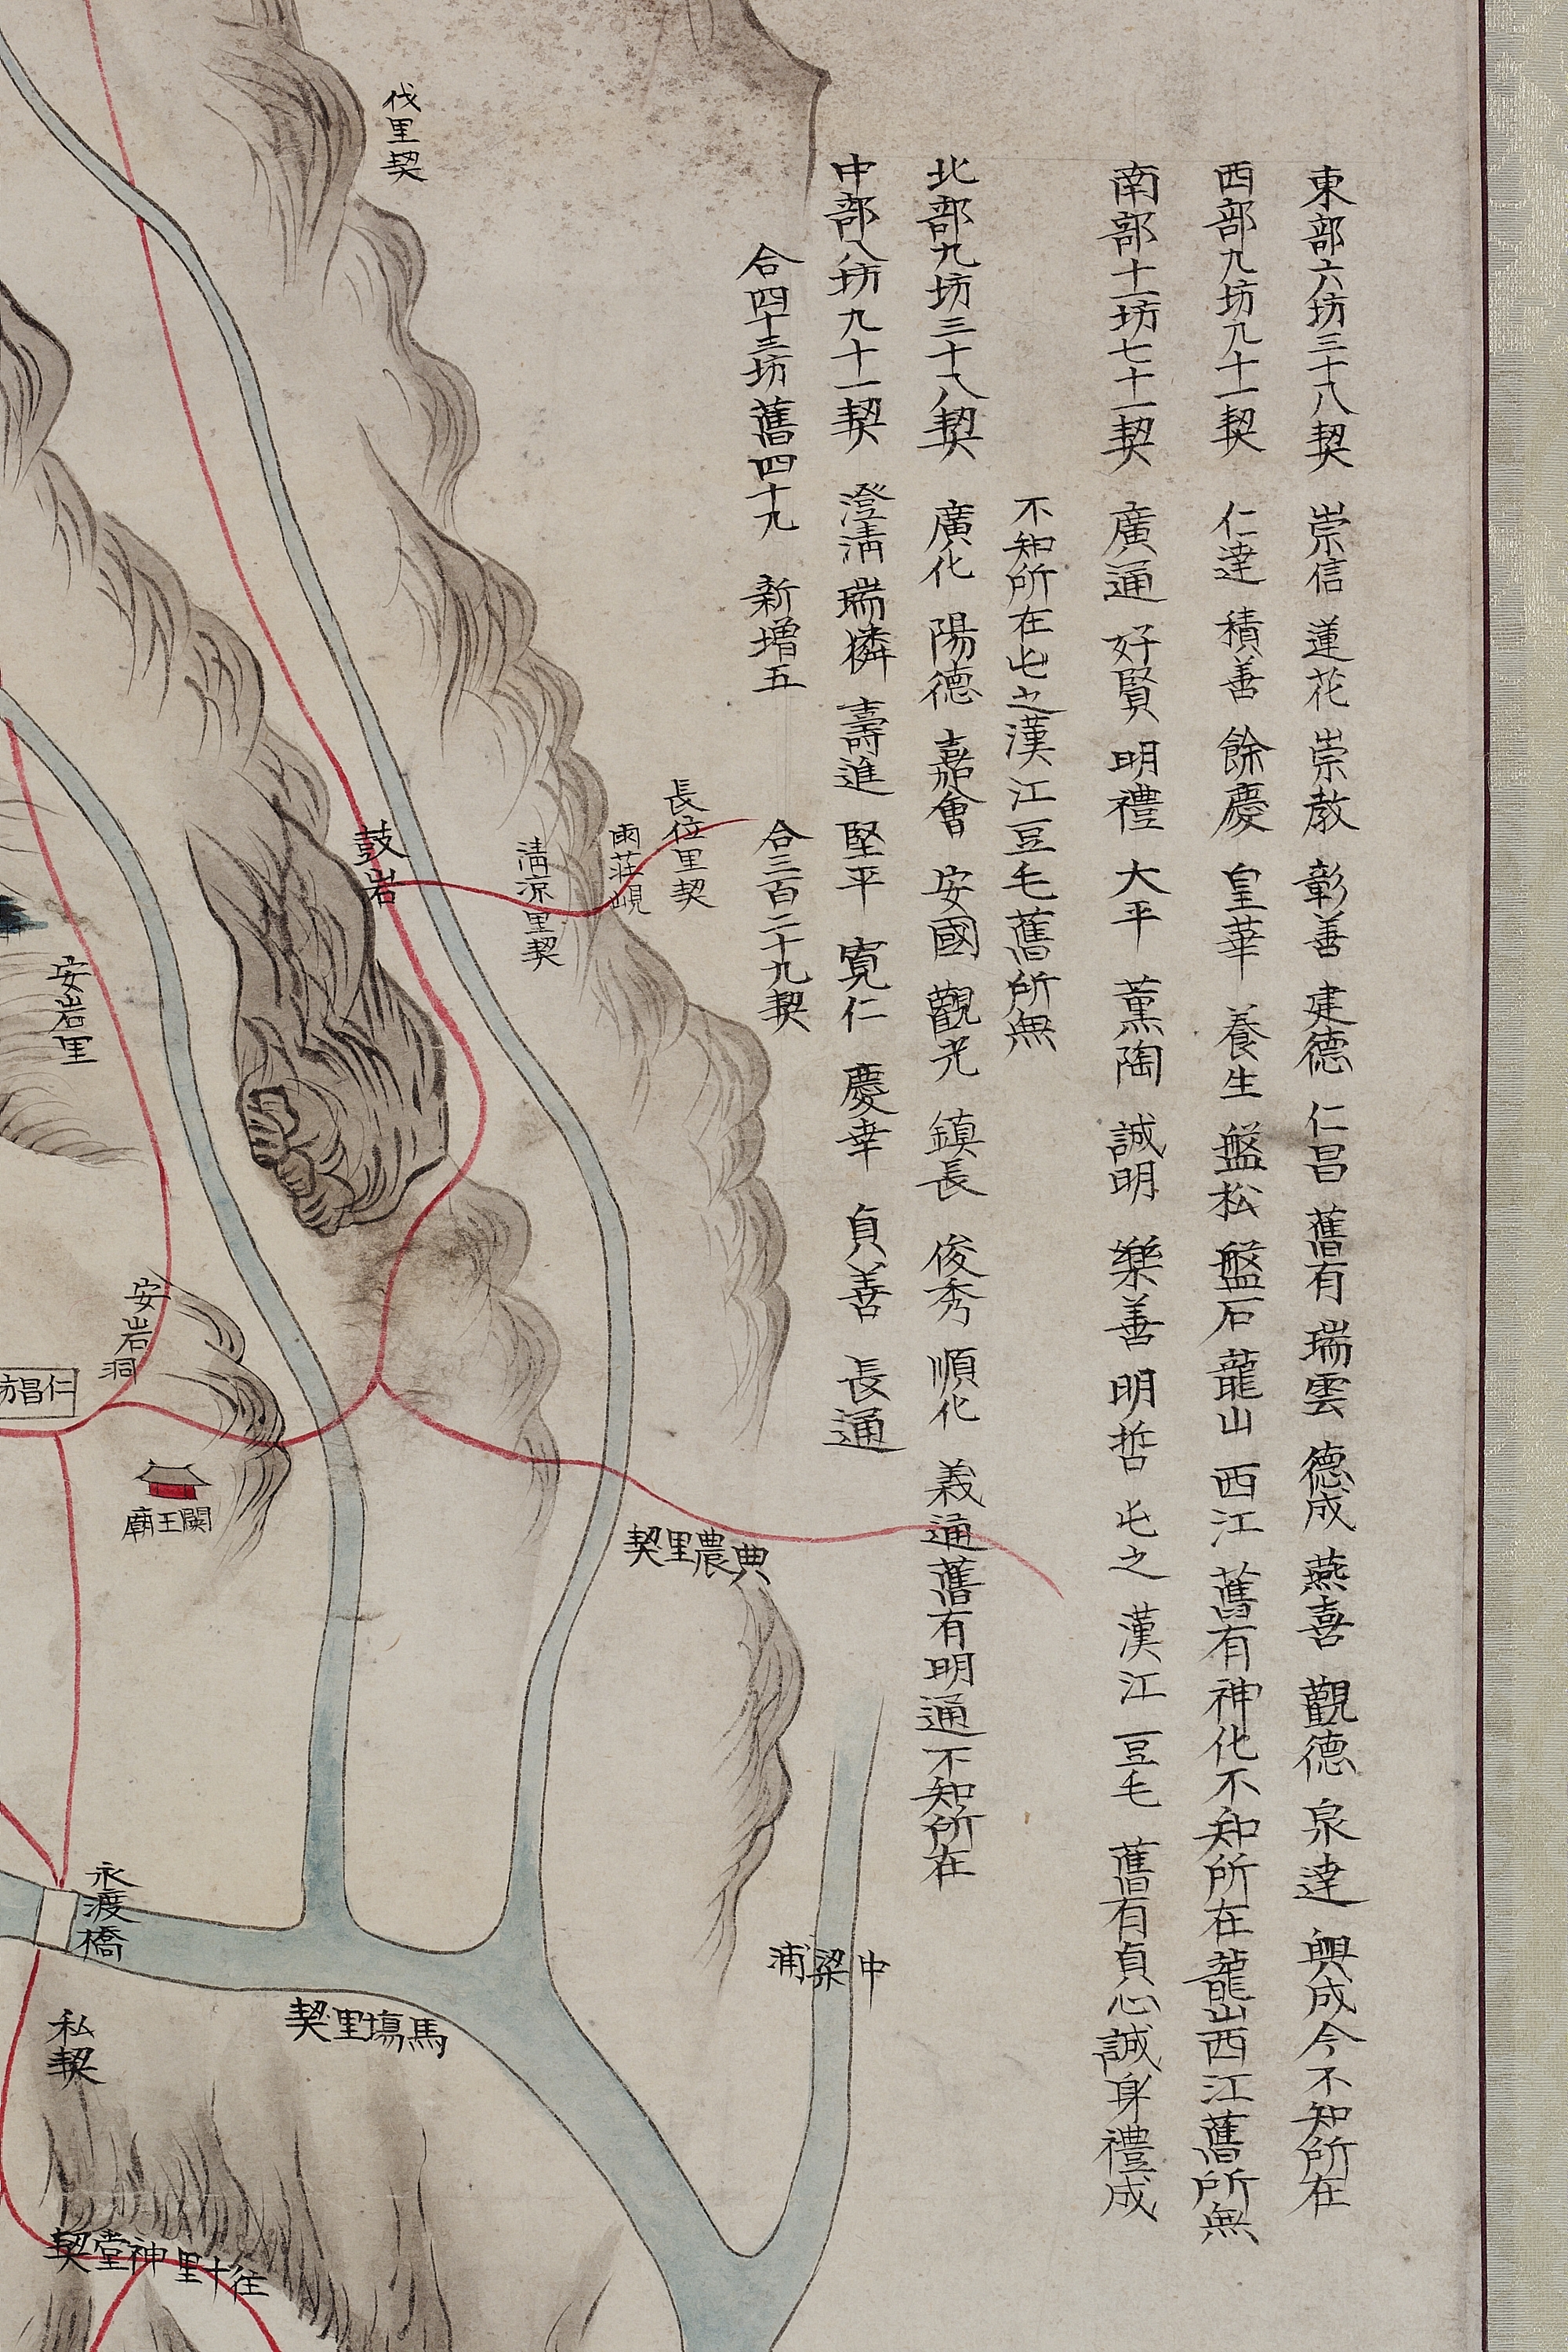 東部六坊三十八契 崇信 蓮花 崇教 彰善 建德 仁昌 舊有 瑞雲 德成 燕喜 觀德 泉達 興成今不知所在
西部九坊九十一契 仁達 積善 餘慶 皇華 養生 盤松 盤石 龍山 西江 舊有神化不知所在龍山西江舊所無
南部十一坊七十一契 廣通 好賢 明禮 大平 薰陶 誠明 樂善 明哲 屯之 漢江 豆毛 舊有貞心誠身禮成
不知所在屯之漢江豆毛舊所無
北部九坊三十八契 廣化 陽德 嘉會 安國 觀光 鎮長 俊秀 順化 義通舊有明通不知所在
中部八坊九十一契 澄清 瑞麟 壽進 堅平 寬仁 慶幸 貞善 長通
合四十三坊 舊四十九 新增五 合三百二十九契
伐里契
長位里契
雨莊峴
清凉里契
鼓岩
安岩里
安岩洞
仁昌坊
關王廟
典農里契
中梁浦
永渡橋
馬塲里契
私契
往十里神堂契